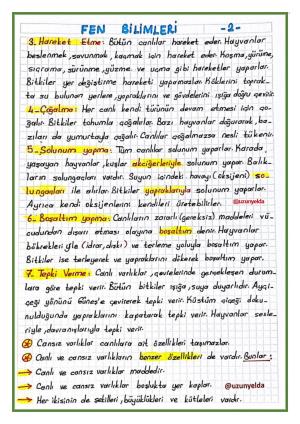 FEN BİLİMLERİ -2-
3. Hareket Etme: Bütün canlılar hareket eder. Hayvanlar
beslenmek, savunmak, kaçmak için hareket eder. Koşma, yürüme,
sıçrama, sürünme, yüzme ve uçma gibi hareketler yaparlar.
Bitkiler yer değiştirme hareketi yapamazlar. Köklerini toprak-
ta su bulunan yerlere, yapraklarını ve gövdelerini ışığa doğru çevirir.
4-Çoğalma: Her canlı kendi türünün devam etmesi için ço-
ğalır. Bitkiler tohumla çoğalırlar. Bazı hayvanlar doğurarak, ba-
zıları da yumurtayla çoğalır. Canlılar çoğalmazsa nesli tükenir.
5-Solunum yapma: Tüm canlılar solunum yaparlar. Karada
yaşayan hayvanlar, kuşlar akciğerleriyle solunum yapar. Balık-
ların solungaçları vardır. Suyun içindeki havayı (oksijeni) so-
lungaçları ile alırlar. Bitkiler yapraklarıyla solunum yaparlar.
Ayrıca kendi oksijenlerini kendileri üretebilirler. @uzunyelda
6-Boşaltım yapma: Canlıların zararlı (gereksiz) maddeleri vü-
cudundan dışarı atması olayına boşaltım denir. Hayvanlar
böbrekleriyle (idrar, dışkı) ve terleme yoluyla boşaltım yapar.
Bitkiler ise terleyerek ve yapraklarını dökerek boşaltım yapar.
7. Tepki Verme: Canlı varlıklar, çevrelerinde gerçekleşen durum-
lara göre tepki verir. Bütün bitkiler ışığa, suya duyarlıdır. Ayçi-
çeği yönünü Güneş'e çevirerek tepki verir. Küstüm çiçeği doku-
nulduğunda yapraklarını kapatarak tepki verir. Hayvanlar sesle-
riyle, davranışlarıyla tepki verir.
Cansız varlıklar canlılara ait özellikleri taşımazlar.
Canlı ve cansız varlıkların benzer özellikleri de vardır. Bunlar;
→ Canlı ve cansız varlıklar maddedir.
→ Canlı ve cansız varlıklar boşlukta yer kaplar. @uzunyelda
→ Her ikisinin de şekilleri, büyüklükleri ve kütleleri vardır.